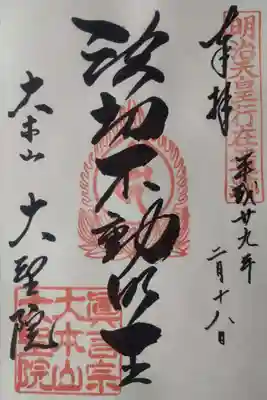 奉拝
明治天皇行在
平成廿九年
二月十八日
波切不動明王
大本山 大聖院
眞言宗
大本山
大聖院